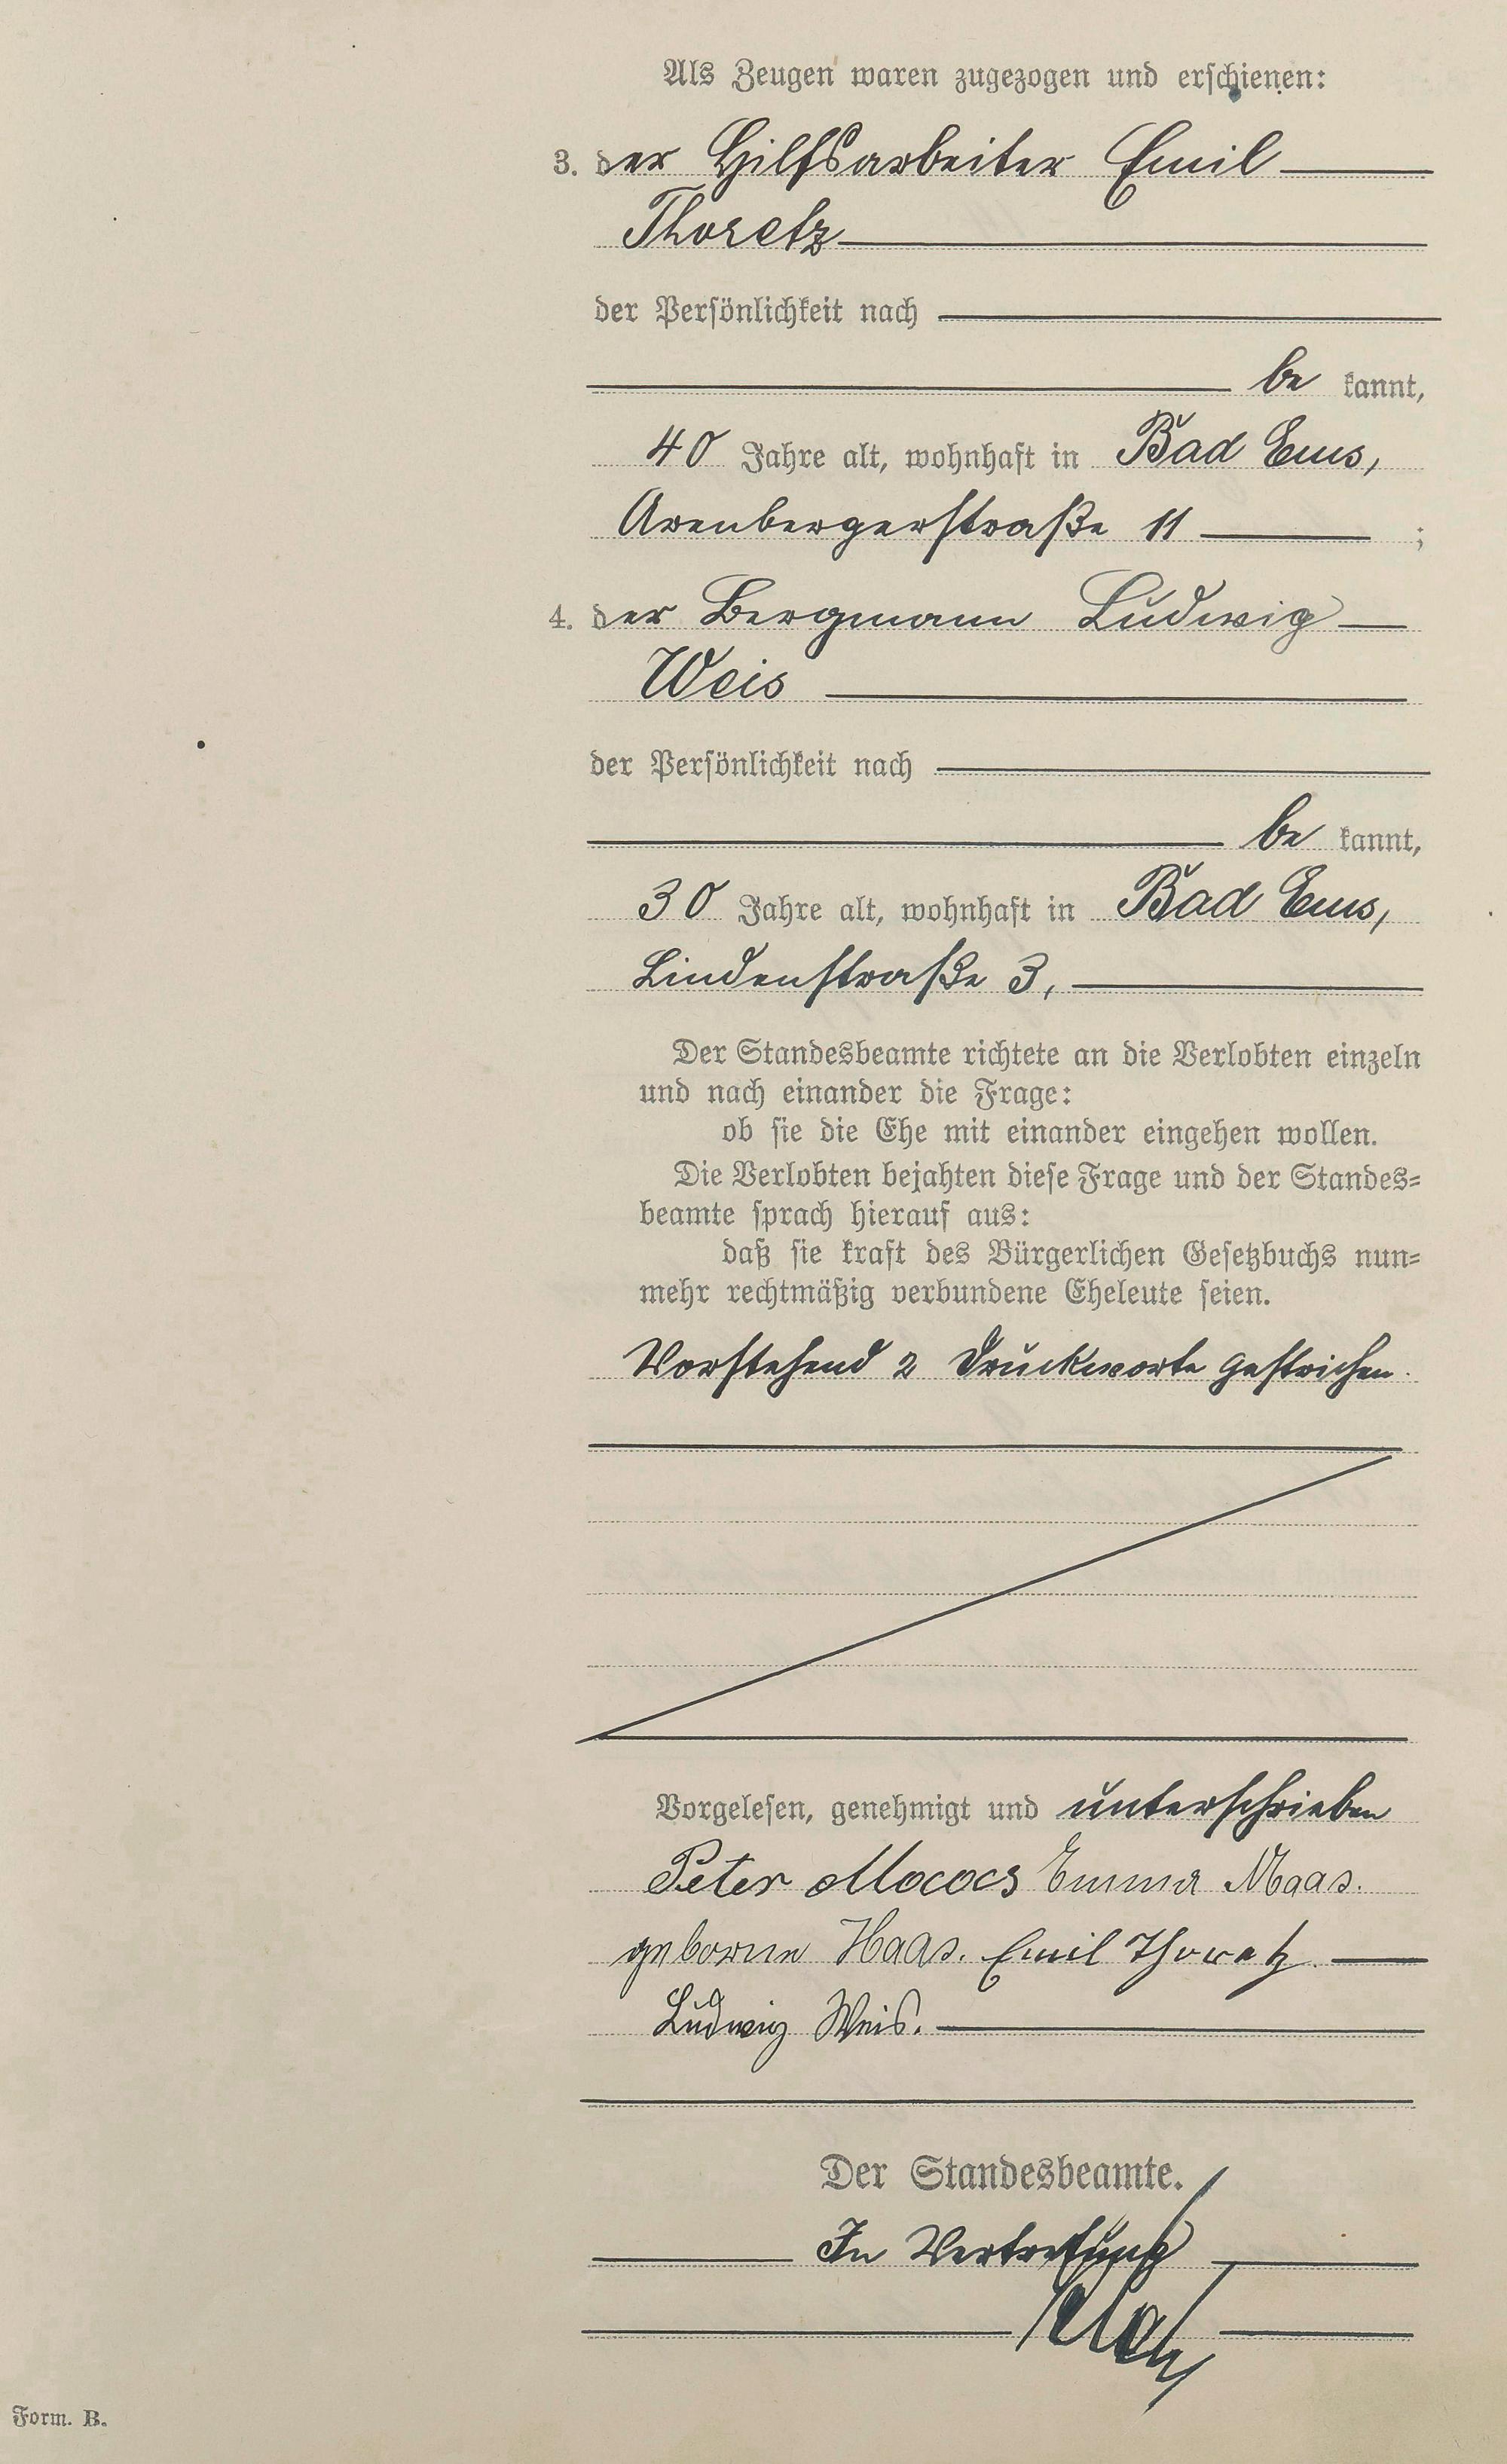 Als Zeugen waren zugezogen und erschienen:
3. der Hilfsarbeiter Emil
Thoretz
der Persönlichkeit nach
be kannt,
40 Jahre alt, wohnhaft in Bad Ems,
Arenbergerstraße 11 ;
4. der Bergmann Ludwig
Weis
der Persönlichkeit nach
be kannt,
30 Jahre alt, wohnhaft in Bad Ems,
Lindenstraße 3,
Der Standesbeamte richtete an die Verlobten einzeln
und nach einander die Frage:
ob sie die Ehe mit einander eingehen wollen.
Die Verlobten bejahten diese Frage und der Standes=
beamte sprach hierauf aus:
daß sie kraft des Bürgerlichen Gesetzbuchs nun=
mehr rechtmäßig verbundene Eheleute seien.
Vorstehend 2 Druckworte gestrichen.
Vorgelesen, genehmigt und unterschrieben
Peter Emma Maas.
geborene Haas. Emil Thoretz
Ludwig Weis.
Der Standesbeamte.
In Vertretung
Form. B.